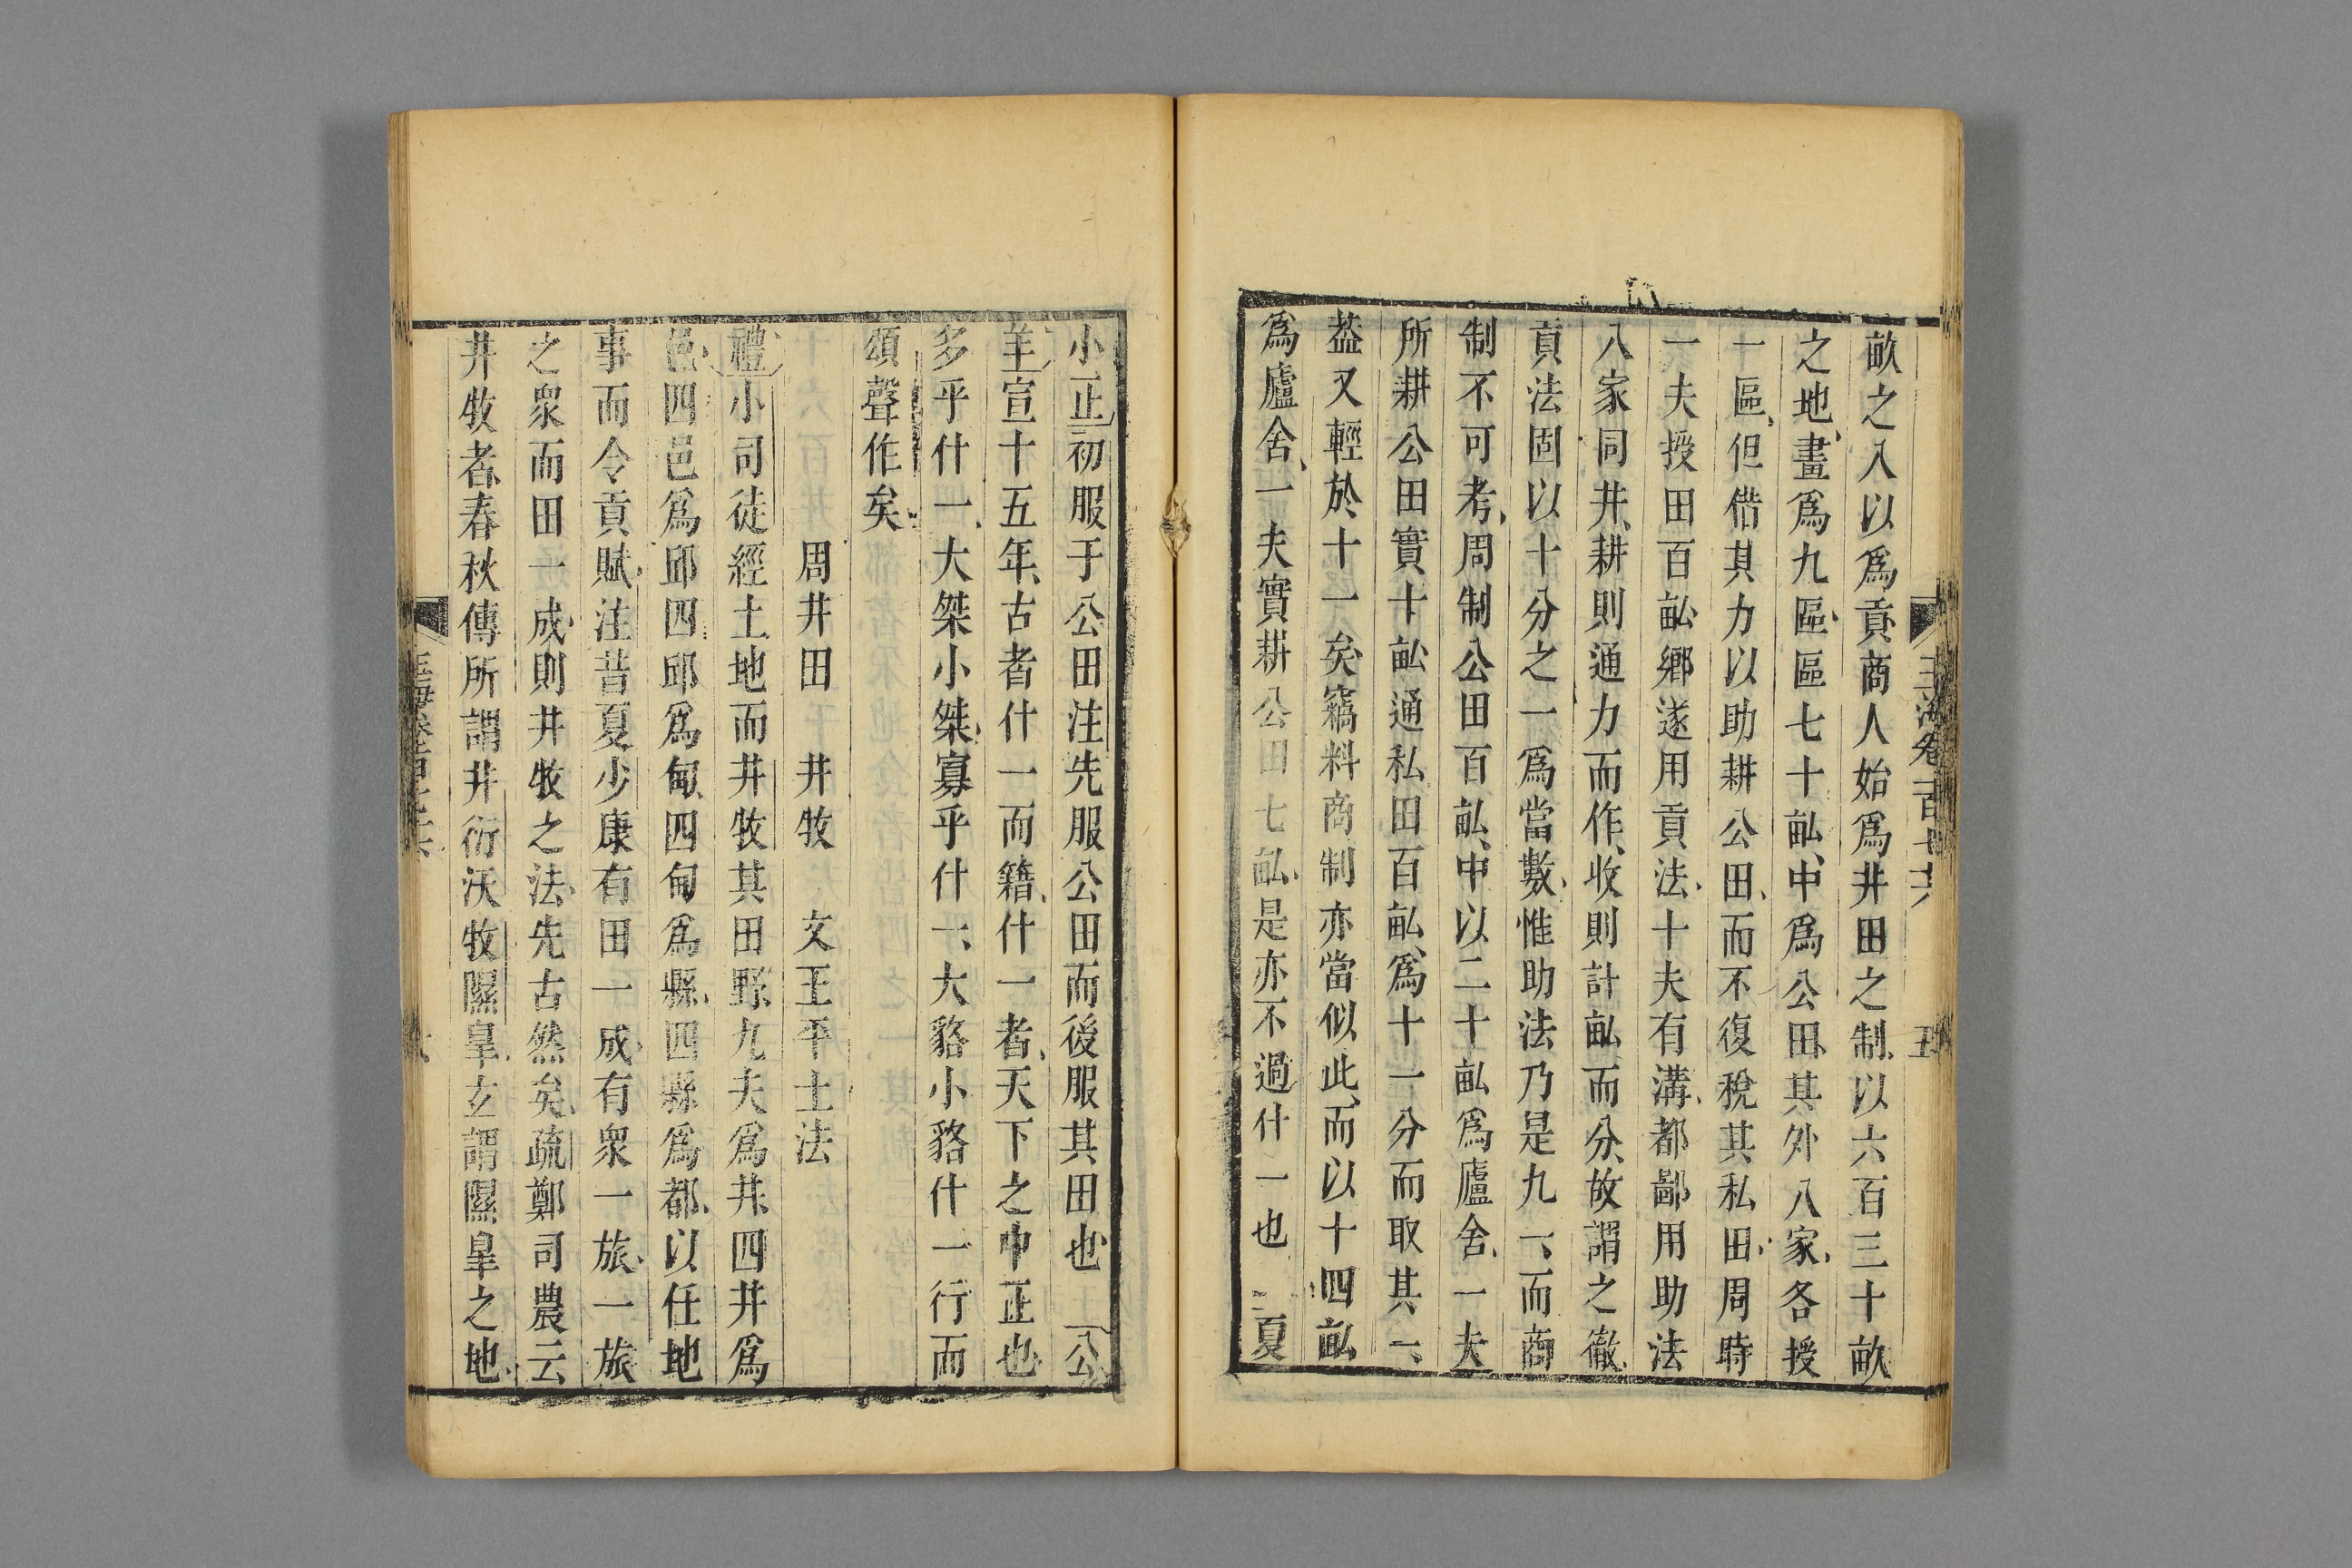 玉海卷一百七十六
五
畝之入以爲貢商人始爲井田之制以六百三十畝
之地畫爲九區區七十畆中爲公田其外八家各授
一區但借其力以助耕公田而不復稅其私田周時
一夫授田百畆鄉遂用貢法十夫有溝都鄙用助法
八家同井耕則通力而作收則計畆而分故謂之徹
貢法固以十分之一爲當數惟助法乃是九一而商
制不可考周制公田百畆中以二十畆爲廬舍一夫
所耕公田實十畆通私田百畆爲十一分而取其一
葢又輕於十一矣竊料商制亦當似此而以十四畆
爲廬舍一夫實耕公田七畆是亦不過什一也 夏
小正初服于公田注先服公田而後服其田也 公
羊宣十五年古者什一而籍什一者天下之中正也
多乎什一大桀小桀寡乎什一大貉小貉什一行而
頌聲作矣
周井田 井牧 文王平土法
禮小司徒經土地而井牧其田野九夫爲井四井爲
邑四邑爲邱四邱爲甸四甸爲縣四縣爲都以任地
事而令貢賦注昔夏少康有田一成有衆一旅一旅
之衆而田一成則井牧之法先古然矣疏鄭司農云
井牧者春秋傳所謂井衍沃牧隰臯玄謂隰臯之地